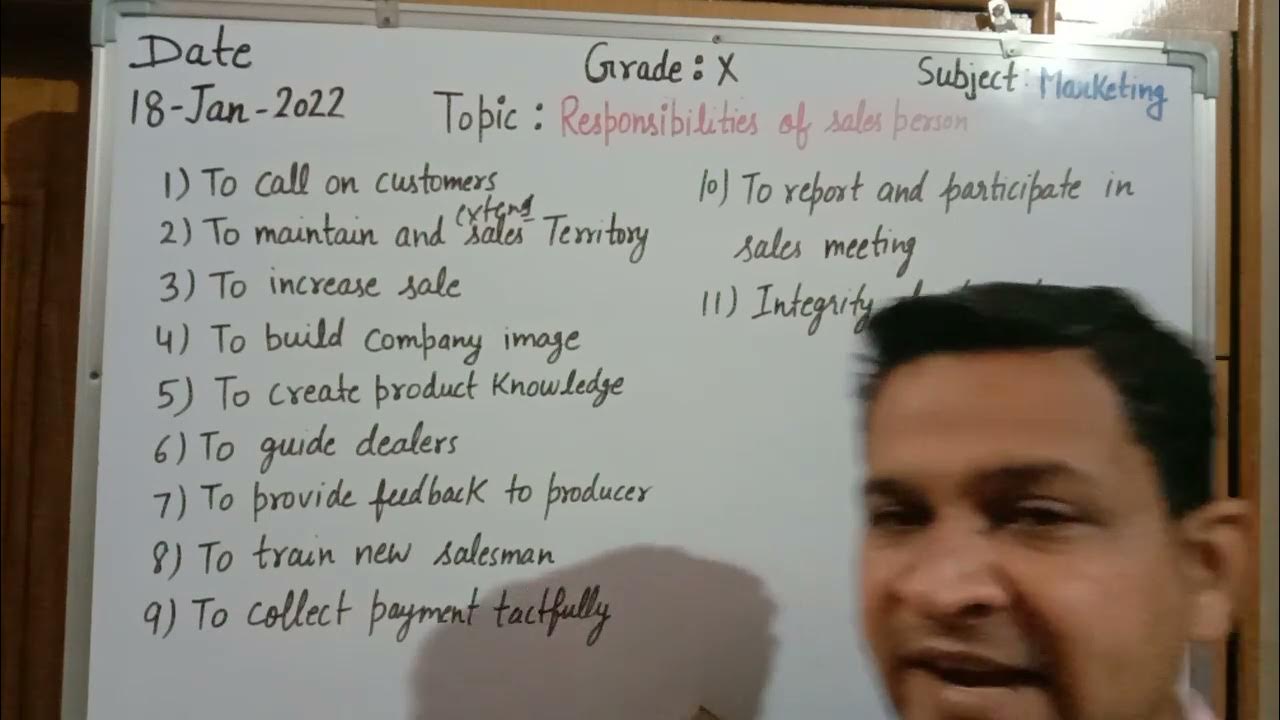 Date
18-Jan-2022
Grade: X
Subject: Marketing
Topic: Responsibilities of sales person
1) To call on customers
2) To maintain and extend sales Territory
3) To increase sale
4) To build company image
5) To create product Knowledge
6) To guide dealers
7) To provide feedback to producer
8) To train new salesman
9) To collect payment tactfully
10) To report and participate in
sales meeting
11) Integrity